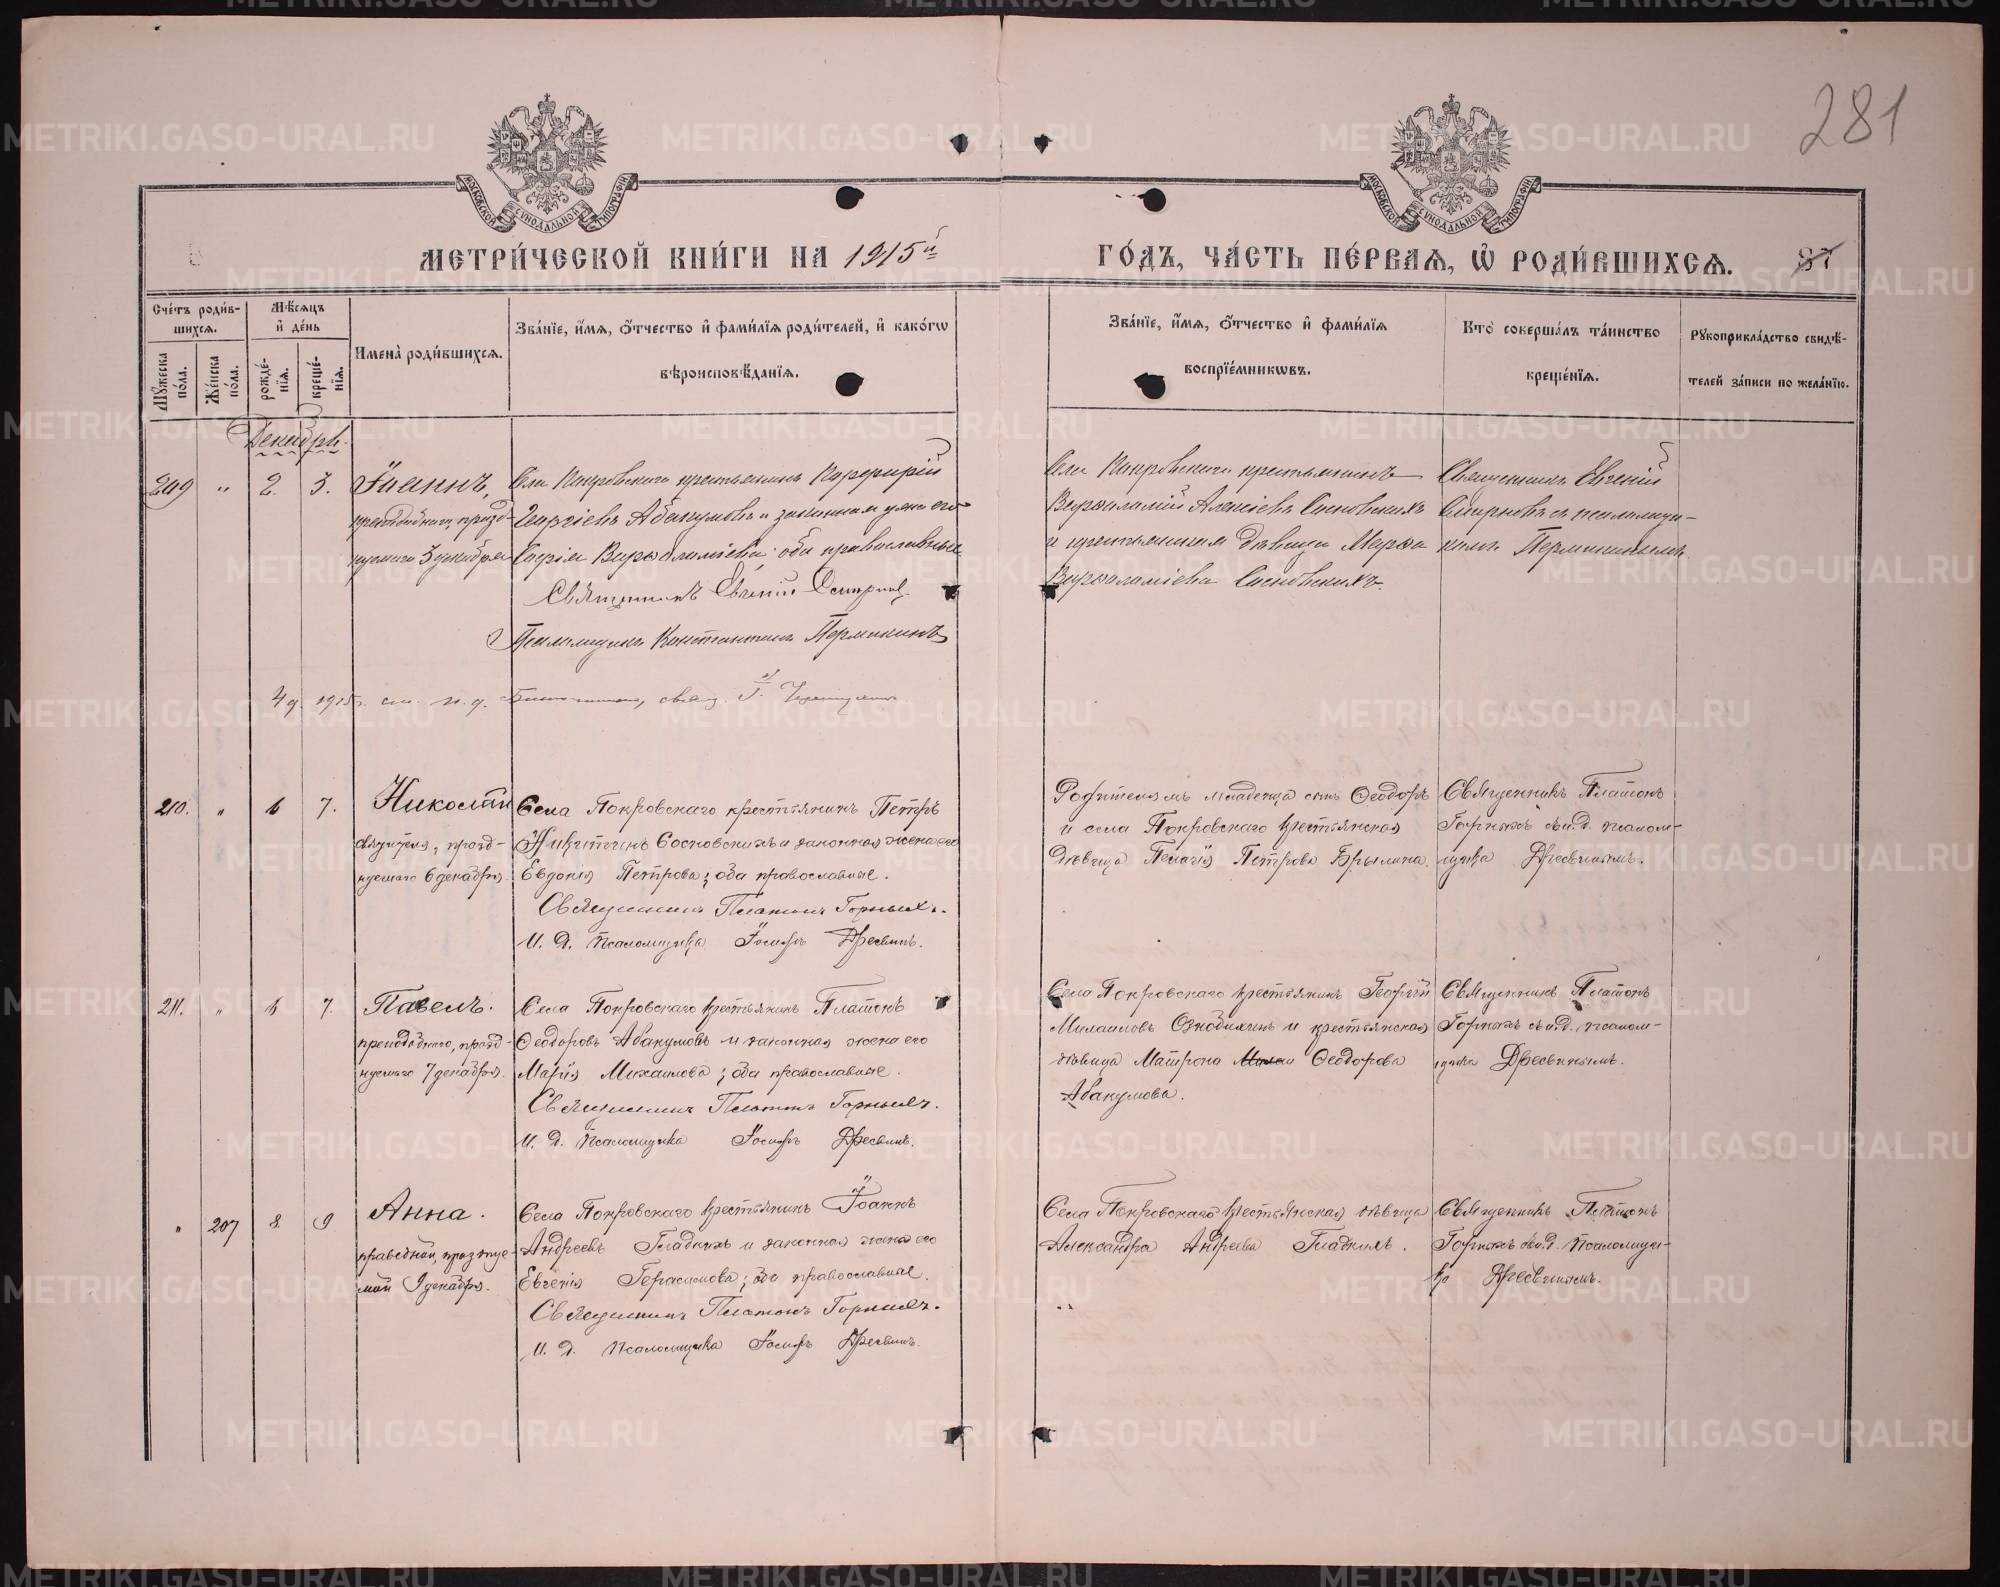 281
МОСКОВСКОЙ СѴНОДАЛЬНОЙ ТИПОГРАФІИ
МОСКОВСКОЙ СѴНОДАЛЬНОЙ ТИПОГРАФІИ
МЕТРИ́ЧЕСКОЙ КНИ́ГИ НА 1915й
ГО́ДЪ, ЧА́СТЬ ПЕ́РВАЯ, Ѡ҆ РОДИ́ВШИХСЯ.
87
Сче́тъ роди́в-
шихся.
Мꙋ́жеска по́ла.
Же́нска по́ла.
Мѣ́сяцъ
и҆ де́нь
рожде́-
нїя.
креще́-
нїя.
И҆мена̀ роди́вшихся.
Зва́нїе, и҆́мя, ѻ҆́тчество и҆ фами́лїя роди́телей, и҆ како́гѡ
вѣроисповѣ́данїя.
Зва́нїе, и҆́мя, ѻ҆́тчество и҆ фами́лїя
воспрїе́мникѡвъ.
Кто̀ соверша́лъ та́инство
креще́нїя.
Рꙋкоприкла́дство свидѣ́-
телей за́писи по жела́нїю.
Декабрь.
209 " 2. 3. Іоаннъ,
преподобнаго, празд-
нуемаго 3 декабря
Села Покровскаго крестьянинъ Порфирій
Георгіевъ Абакумовъ и законная жена его
Софія Варѳоломіева оба православные
Священникъ Евгеній Смирнов
Псаломщикъ Константинъ Пермикинъ
Села Покровскаго крестьянинъ
Варѳоломій Алексіевъ Сосновскихъ
и крестьянская дѣвица Марѳа
Варѳоломіева Сосновскихъ.
Священникъ Евгеній
Смирновъ съ псаломщи-
комъ Пермикинымъ.
4 д. 1915 г.
210. " 6 7. Николай
святителя, празд-
нуемаго 6 декабря.
Села Покровскаго крестьянинъ Петръ
Никитинъ Сосновскихъ и законная жена его
Евдокія Петрова; оба православные.
Священникъ Платонъ Горныхъ.
И. Д. Псаломщика Іосифъ Дресвинъ.
Родителямъ младенца сынъ Ѳеодоръ
и села Покровскаго крестьянская
дѣвица Пелагія Петрова Брылина.
Священникъ Платонъ
Горныхъ съ и.д. псалом-
щика Дресвинымъ.
211. " 6 7. Павелъ.
преподобнаго, празд-
нуемаго 7 декабря.
Села Покровскаго крестьянинъ Платонъ
Ѳеодоровъ Абакумовъ и законная жена его
Марія Михаилова; оба православные.
Священникъ Платонъ Горныхъ.
И. Д. Псаломщика Іосифъ Дресвинъ.
Села Покровскаго крестьянинъ Георгій
Михаиловъ Ознобихинъ и крестьянская
дѣвица Матрона Ѳеодорова
Абакумова.
Священникъ Платонъ
Горныхъ съ и.д. псалом-
щика Дресвинымъ.
" 207 8 9 Анна.
праведной, празднуе-
мой 9 декабря.
Села Покровскаго крестьянинъ Іоаннъ
Андреевъ Гладкихъ и законная жена его
Евгенія Герасимова; оба православные.
Священникъ Платонъ Горныхъ.
И. Д. Псаломщика Іосифъ Дресвинъ.
Села Покровскаго крестьянская дѣвица
Александра Андреева Гладкихъ.
Священникъ Платонъ
Горныхъ съ и.д. псаломщи-
ка Дресвинымъ.
METRIKI.GASO-URAL.RU